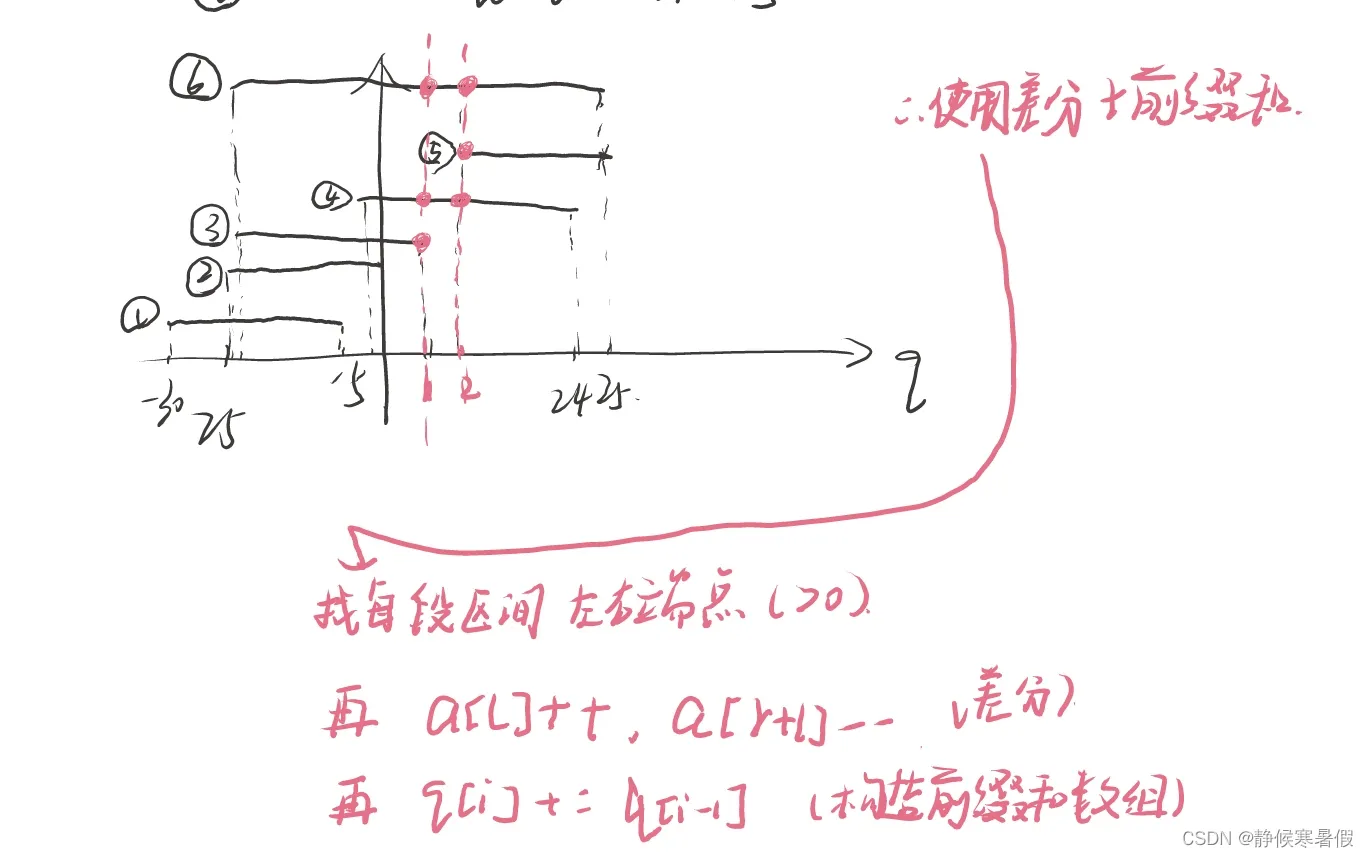 ⑥
∴使用差分+前缀和.
⑤
④
③
②
①
-30 25 -5 1 2 24 25. q
找每段区间 左右端点 (>0).
再 a[L]++, a[r+1]-- (差分)
再 q[i] += q[i-1] (构造前缀和数组)
CSDN @静候寒暑假